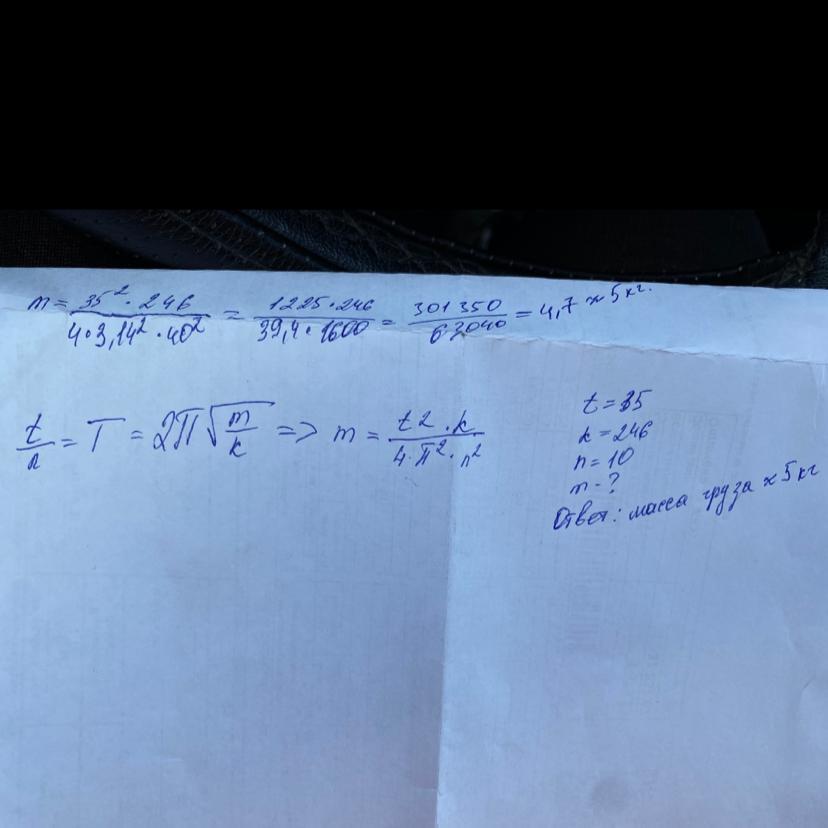 m = 35² · 246 / 4 · 3,14² · 40² = 1225 · 246 / 39,4 · 1600 = 301350 / 63040 = 4,7 ≈ 5 кг.
t/n = T = 2π√(m/k) => m = t2 · k / 4 · π² · n²
t = 35
k = 246
n = 10
m - ?
Ответ: масса груза ≈ 5 кг